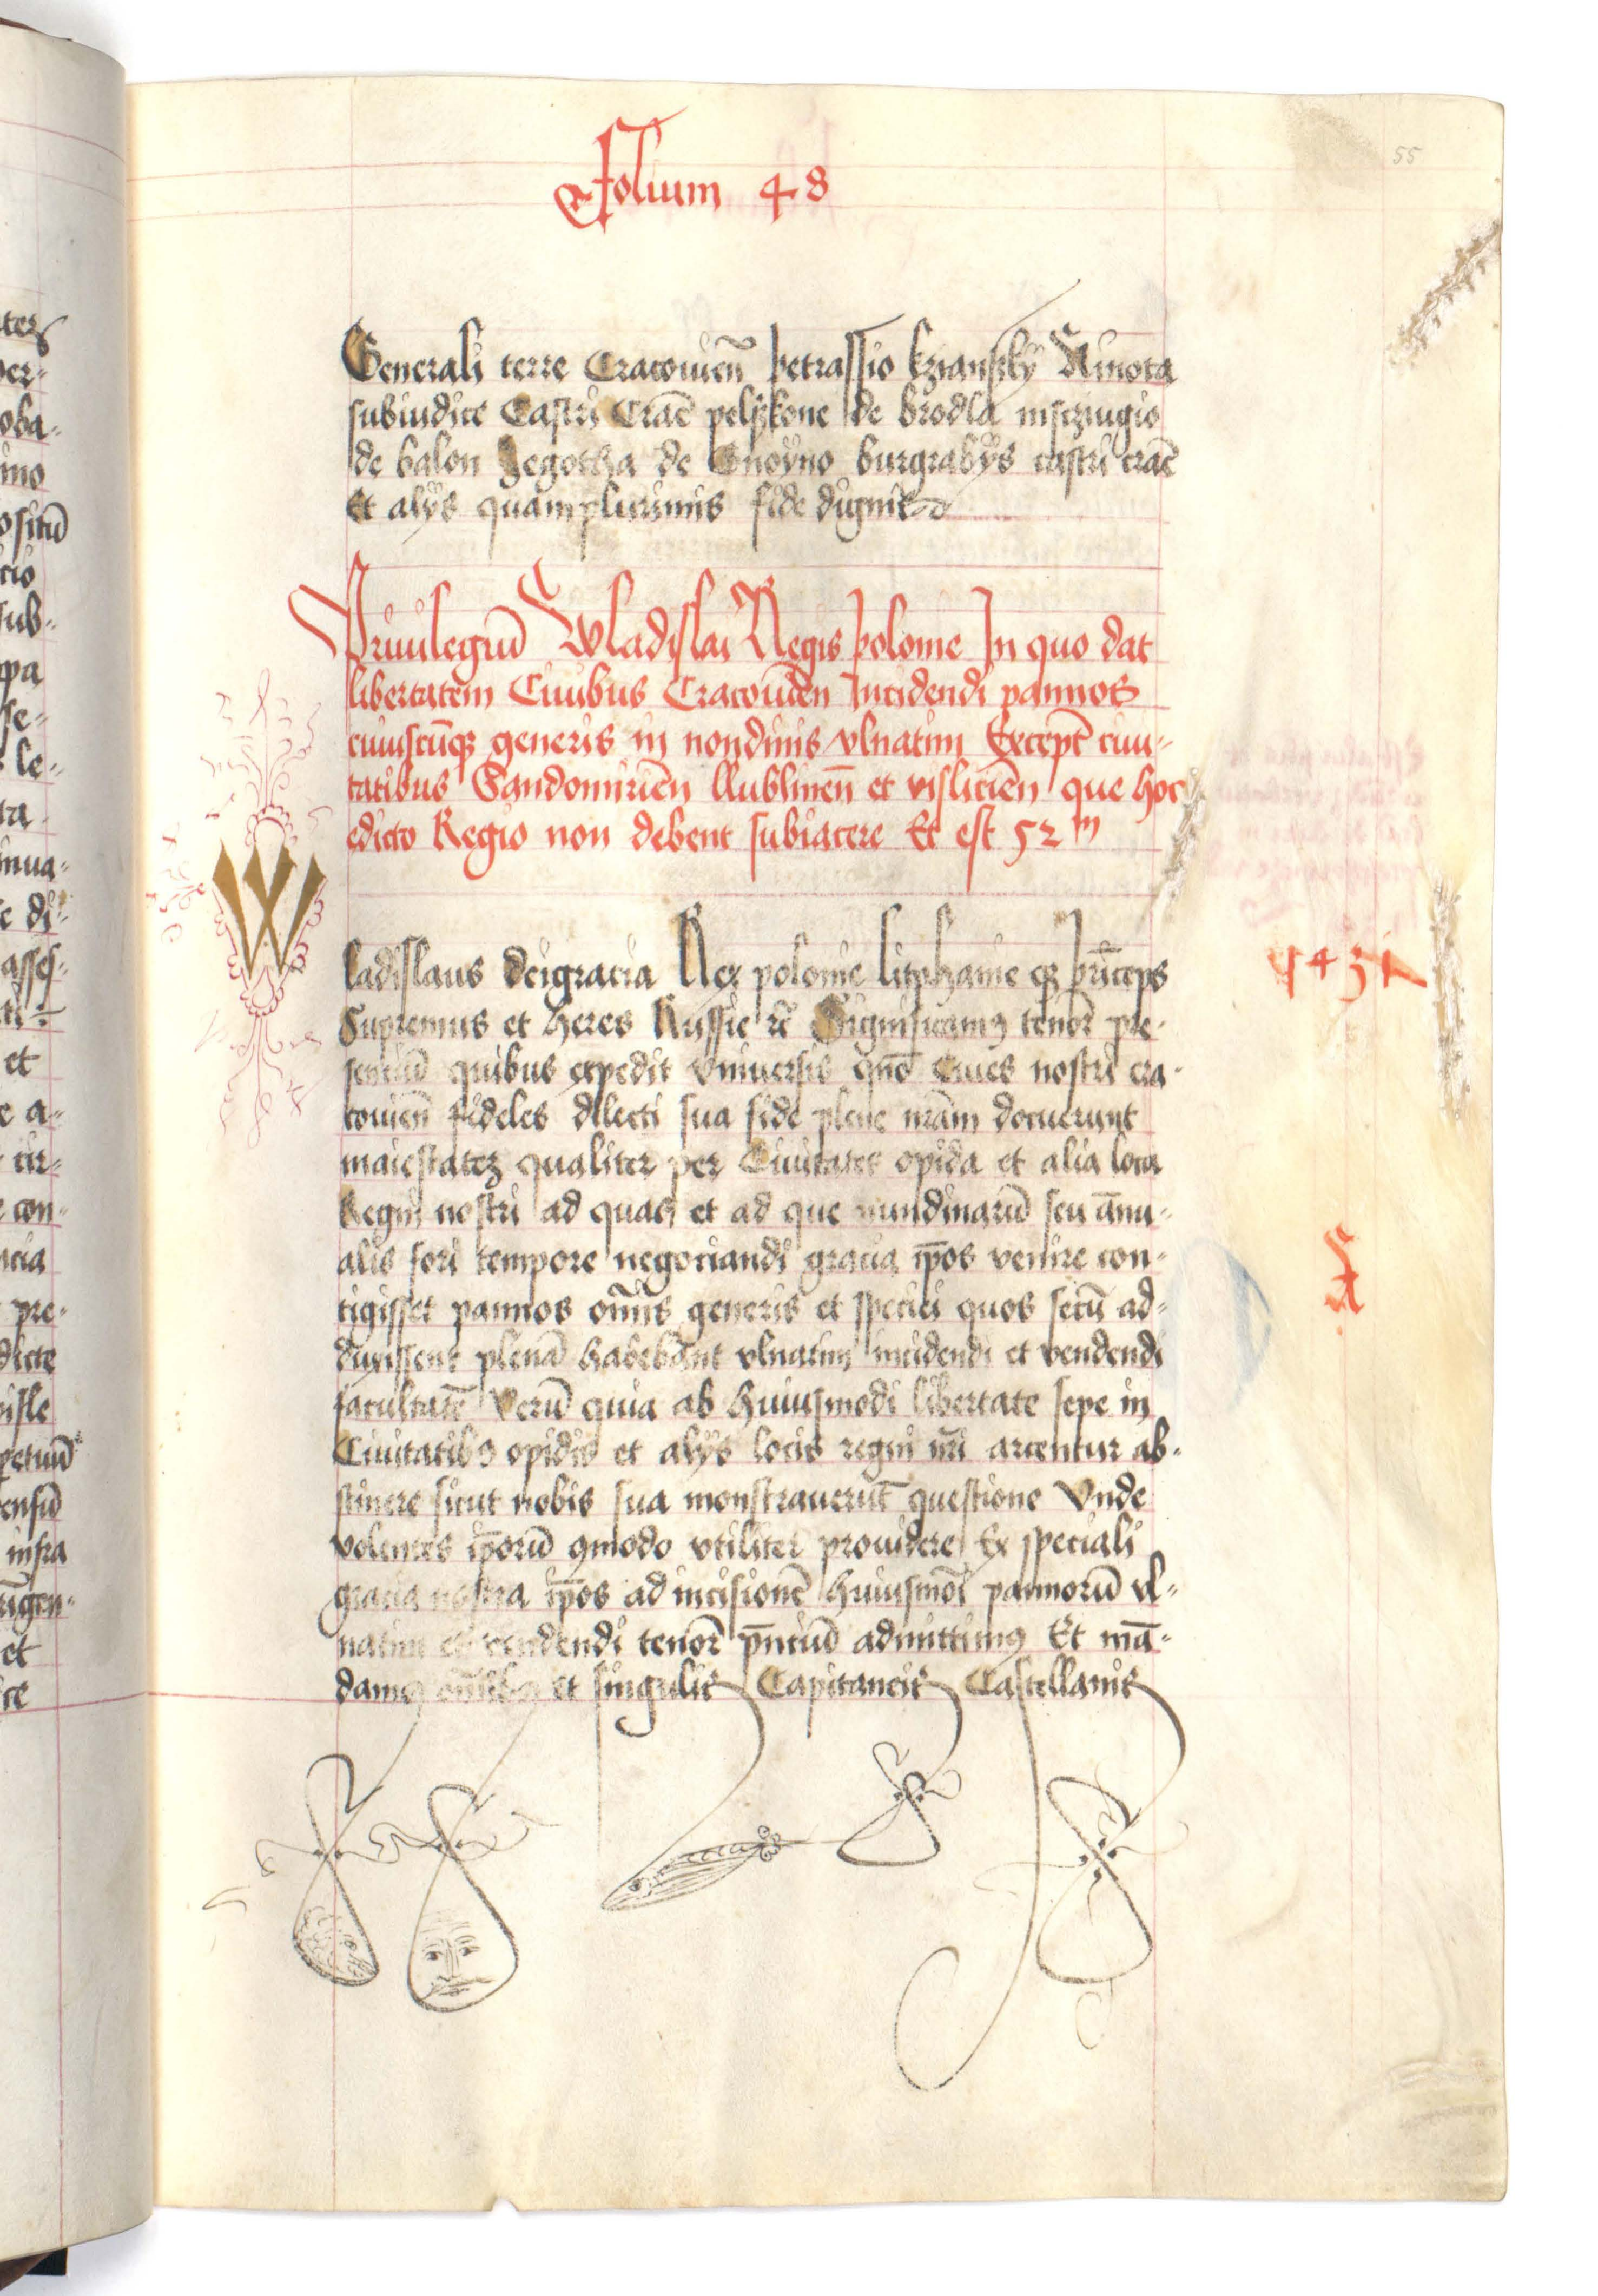 55
Folium 48
Generali terre Cracouien̄ petrassio
subiudice Castri Crac̄ pelzkone de brodla mscziugio
de balon Zegotha de Gnoyno burgrabÿs castri crac̄
Et alÿs quamplurimis fide dignis
Priuilegiū Wladislai Regis polonie In quo dat
libertatem Ciuibus Cracouien̄ Incidendi pannos
cuiuscūqꝫ generis in nondinis vlnatim Except̄ ciui-
tatibus Sandomirien̄ llublinen̄ et vislicien̄ que hoc
edicto Regio non debent subiacere Et est 52ᵐ
Wladislaus deigracia Rex polonie litphanie qꝫ prīceps
Supremus et heres Russie rc̄ Significamꝰ tenor̄ pre-
1431
senciū quibus expedit vniuersis quō Ciues nostri cra-
couien̄ fideles dilecti sua fide plene nrām docuerunt
maiestateꝫ qualiter per Ciuitates opida et alia loca
Regni nostri ad quas et ad que nundinarū seu ānu-
alis fori tempore negociandi gracia ip̄os venire con-
tigisset pannos om̄is generis et speciei quos secū ad-
duxissent plenā habebant vlnatim incidendi et vendendi
facultatē Verū quia ab huiusmodi libertate sepe in
Ciuitatibꝰ opidis et alÿs locis regni nr̄i arcentur ab-
stinere sicut nobis sua monstrauerūt questione Vnde
volentes ip̄orū ꝯmodo vtiliter prouidere Ex speciali
gracia nostra ip̄os ad incisionē huiusmōi pannorū vl-
natim et vendendi tenor̄ pn̄ciū admittimꝰ Et mā-
damꝰ om̄ibꝰ et singulis Capitaneis Castellanis